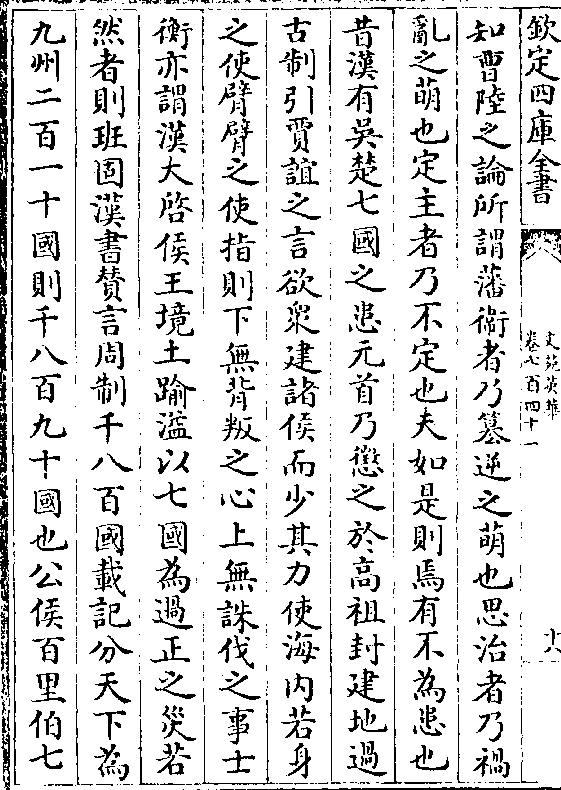 欽定四庫全書
文苑英華
卷七百四十一
十六
知曹陸之論所謂藩衛者乃篡逆之萌也思治者乃禍
亂之萌也定主者乃不定也夫如是則焉有不為患也
昔漢有吳楚七國之患元首乃懲之於高祖封建地過
古制引賈誼之言欲衆建諸侯而少其力使海内若身
之使臂臂之使指則下無背叛之心上無誅伐之事士
衡亦謂漢大啓侯王境土踰溢以七國為過正之災若
然者則班固漢書贊言周制千八百國載記分天下為
九州二百一十國則千八百九十國也公侯百里伯七